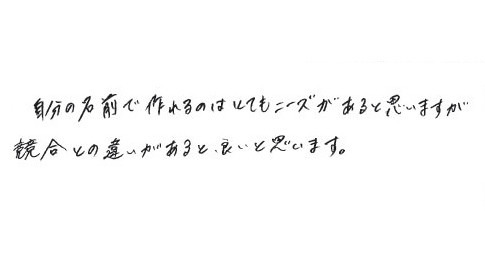 自分の名前で作れるのはとてもニーズがあると思いますが
競合との違いがあると良いと思います。